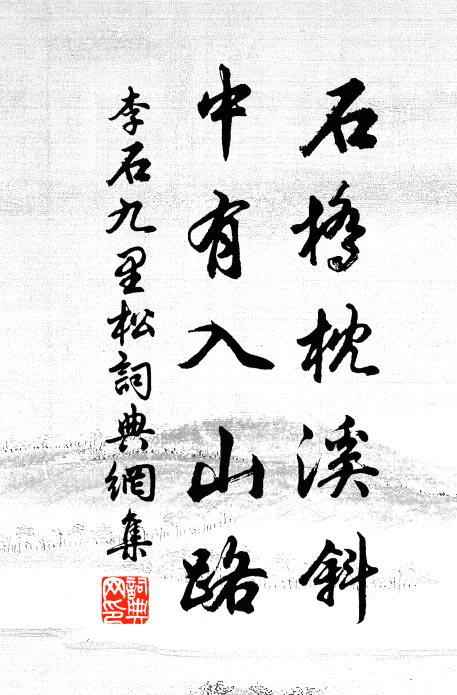 石橋枕溪斜
中有入山路
李石九里松詞典網集
詞典網印